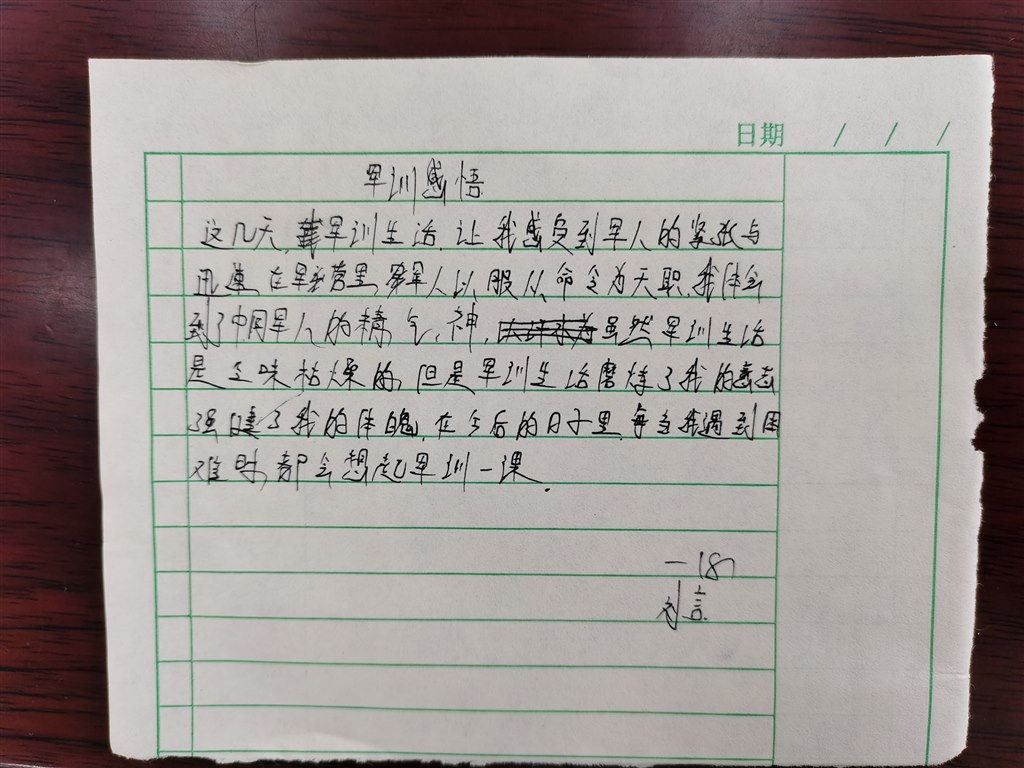 日期 / / /
军训感悟
这几天,军训生活,让我感受到军人的紧张与
迅速,在军营里,军人以服从命令为天职,我体会
到了中国军人的精气神,虽然军训生活
是乏味枯燥的,但是军训生活磨炼了我的意志
强健了我的体魄,在今后的日子里,每当我遇到困
难时,都会想起军训一课.
一(8)
刘言